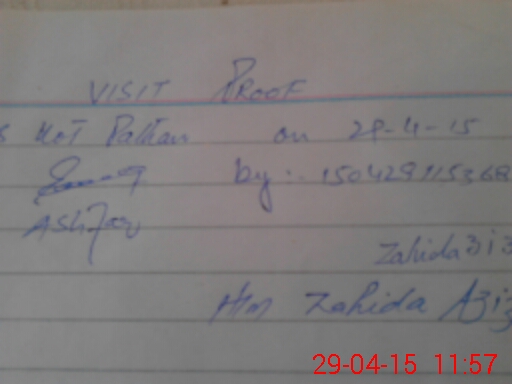 VISIT PROOF
Kot Pathan on 29-4-15
by:- 150429115368
Ashfaq
Zahida Aziz
Hm Zahida Aziz
29-04-15 11:57